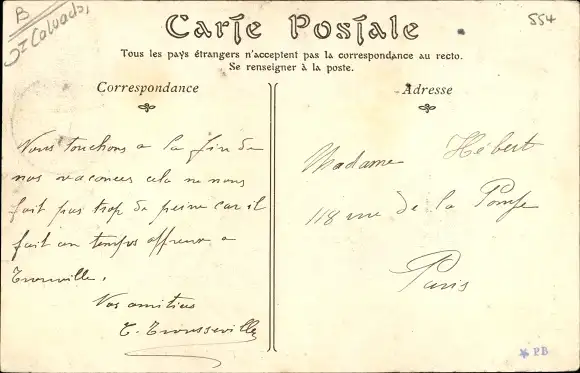 B
Calvados,
554
Carte Postale
Tous les pays étrangers n'acceptent pas la correspondance au recto.
Se renseigner à la poste.
Correspondance
Nous touchons a la fin de
nos vacances cela ne nous
fait pas trop de peine car il
fait un temps affreux a
Trouville.
Vos amities
T. Trousseville
Adresse
Madame Hébert
118 rue de la Pompe
Paris
PB